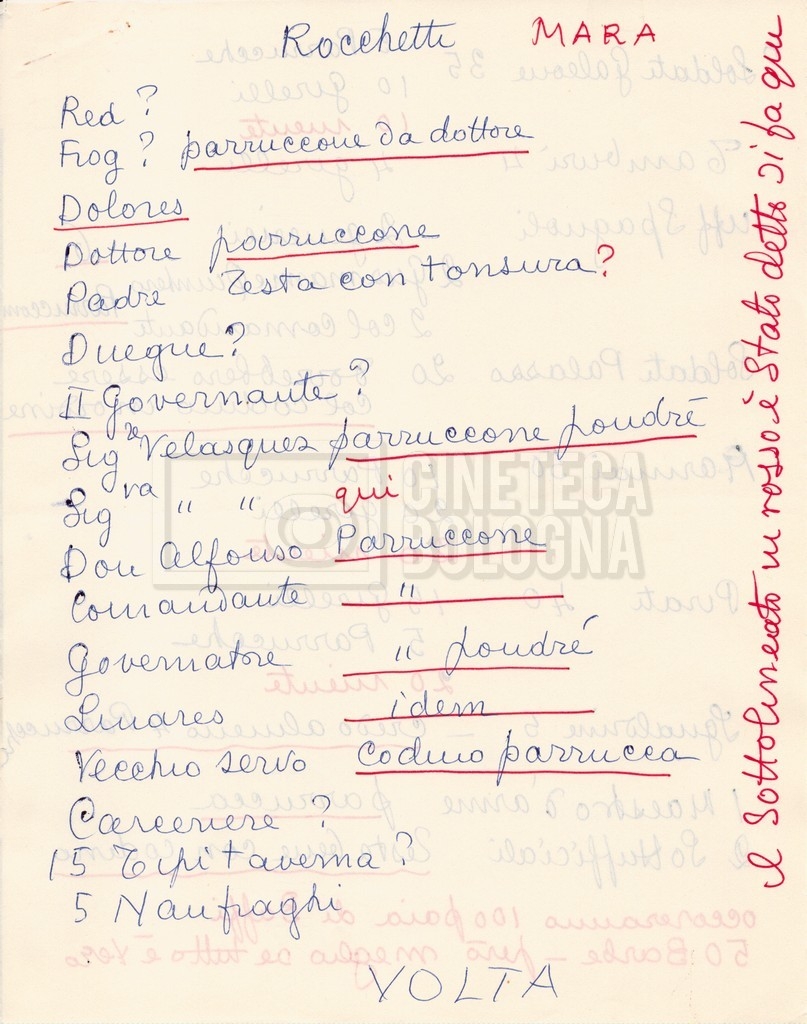 Rocchetti MARA
Red ?
Frog ? parruccone da dottore
Dolores
Dottore parruccone
Padre Testa con tonsura ?
Duegne ?
II Governante ?
Sig re Velasquez parruccone poudré
Sig ra " " qui
Don Alfonso Parruccone
Comandante "
Governatore " poudré
Linares idem
Vecchio servo Codino parrucca
Carceriere ?
15 Tipi taverna ?
5 Naufraghi
VOLTA
il Sottolineato in rosso è stato detto si fa qui
CINETECA
BOLOGNA